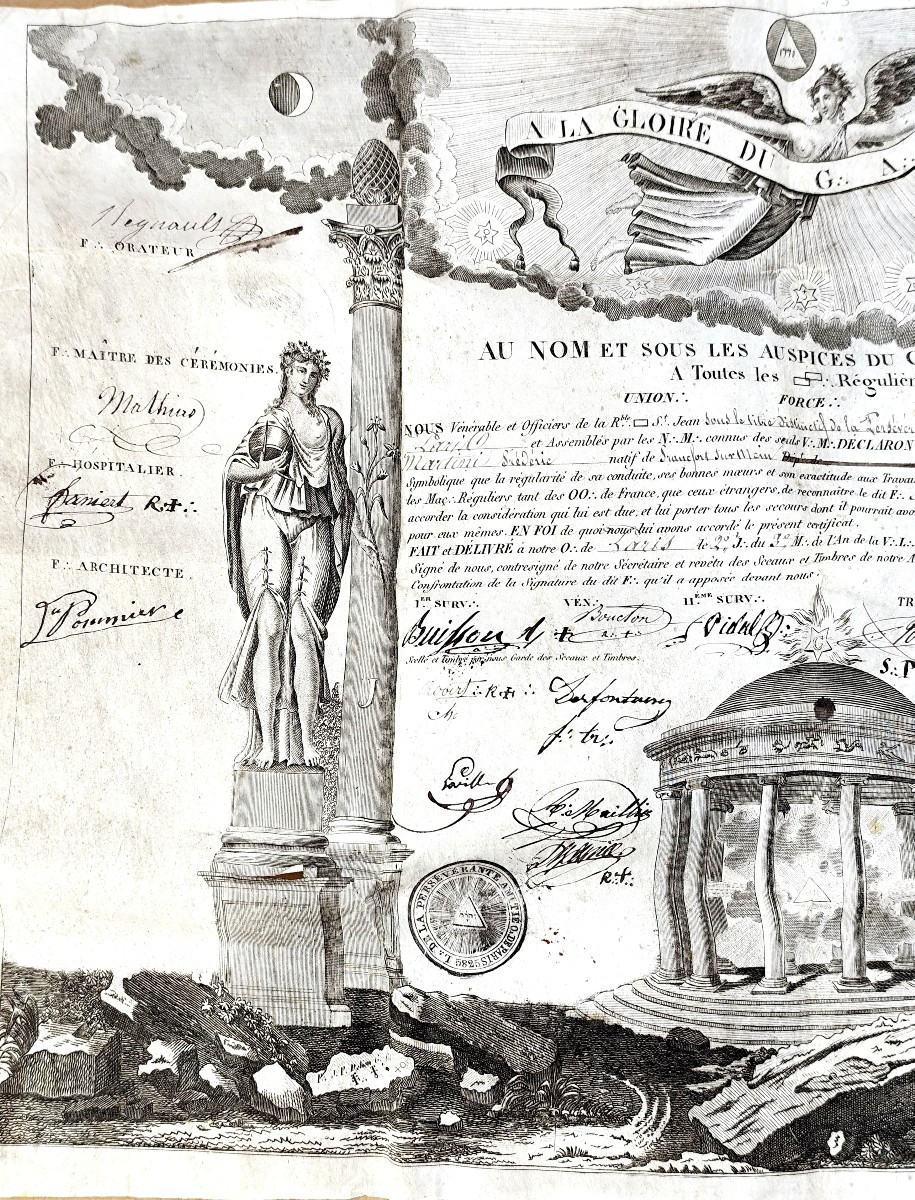 A LA GLOIRE DU G∴ A∴
Regnault
F∴ ORATEUR
F∴ MAÎTRE DES CÉRÉMONIES.
Mathieu
F∴ HOSPITALIER.
R.✝.
F∴ ARCHITECTE.
Pommier
AU NOM ET SOUS LES AUSPICES DU
A Toutes les ▭▭∴ Réguliè
UNION∴ FORCE∴
NOUS Vénérable et Officiers de la R.ble ▭ S.t Jean Sous le titre Distinctif de la Persévér
Paris O et Assemblés par les N∴M∴ connus des seuls V∴M∴ DÉCLARON
Martini Fréderic natif de Francfort Sur Mein
Symbolique que la régularité de sa conduite, ses bonnes mœurs et son exactitude aux Travau
les Maç∴ Réguliers tant des OO∴ de France, que ceux étrangers, de reconnaître le dit F∴
accorder la considération qui lui est due, et lui porter tous les secours dont il pourrait avo
pour eux mêmes. EN FOI de quoi nous lui avons accordé le présent certificat.
FAIT et DÉLIVRÉ à notre O∴ de Paris le 2.e J∴ du 3.e M∴ de l'An de la V∴L∴
Signé de nous, contresigné de notre Sécrétaire et revêtu des Sceaux et Timbres de notre A
Confrontation de la Signature du dit F∴ qu'il a apposée devant nous∴
I.ER SURV∴ VÉN∴ II.ÈME SURV∴ TR
Buisson Bouclon Vidal
Scellé et Timbré par nous Garde des Sceaux et Timbres.
S∴ P
Robert∴ R✝∴ Desfontaines
f∴ tr∴
Maillis
R.✝.
L∴ DE LA PERSÉVÉRANTE AMITIÉ O∴ DE PARIS 5785